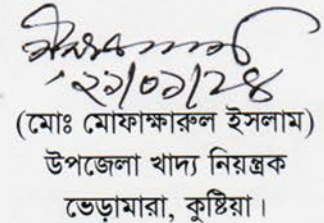 ২১/০১/২৪
(মোঃ মোফাক্ষারুল ইসলাম)
উপজেলা খাদ্য নিয়ন্ত্রক
ভেড়ামারা, কুষ্টিয়া।